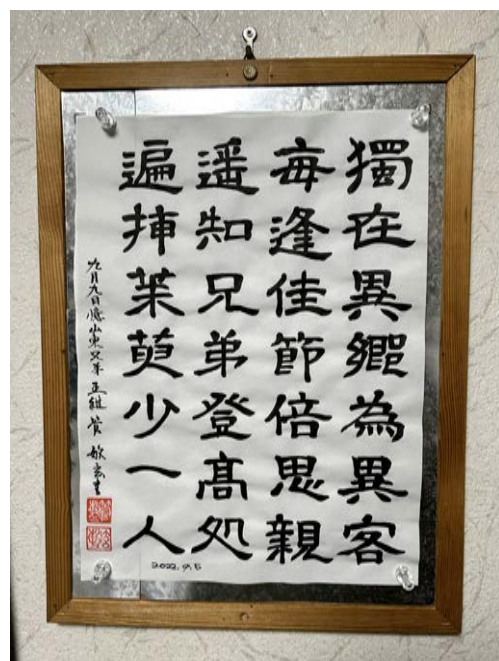 獨在異鄉為異客
每逢佳節倍思親
遥知兄弟登髙処
遍揷茱萸少一人
九月九日憶山東兄弟 王維 菅 敏
2022.9.5